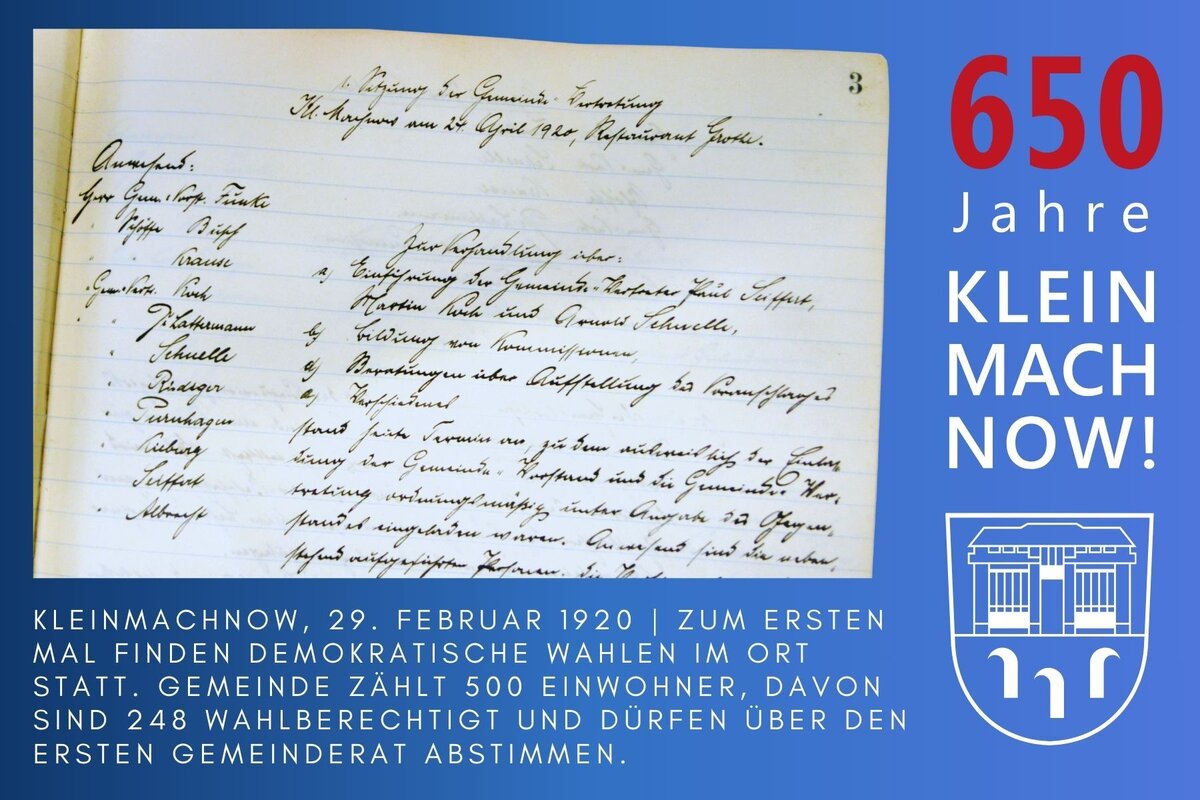 3
1. Sitzung der Gemeinde-Vertretung
Kl. Machnow am 24. April 1920, Restaurant Grothe.
Anwesend:
Herr Gem. Vorst. Funke
" Schöffe Busch
" " Krause
" Gem. Vertr. Koch
" Lattermann
" Schnelle
" Rüdeger
" Purnhagen
" Kieburg
" Seiffert
" Albrecht
Zur Verhandlung über:
a) Einführung der Gemeinde-Vertreter Paul Seiffert,
Martin Koch und Arnold Schnelle,
b) Bildung von Kommissionen,
Beratungen über Aufstellung des Voranschlages
Verschiedenes
stand heute Termin an, zu dem ausweislich der Einla-
dung der Gemeinde-Vorstand und die Gemeinde-Ver-
tretung ordnungsmäßig unter Angabe des Gegen-
standes eingeladen waren. Anwesend sind die neben-
stehend aufgeführten Personen. Die
650
Jahre
KLEIN
MACH
NOW!
KLEINMACHNOW, 29. FEBRUAR 1920 | ZUM ERSTEN
MAL FINDEN DEMOKRATISCHE WAHLEN IM ORT
STATT. GEMEINDE ZÄHLT 500 EINWOHNER, DAVON
SIND 248 WAHLBERECHTIGT UND DÜRFEN ÜBER DEN
ERSTEN GEMEINDERAT ABSTIMMEN.